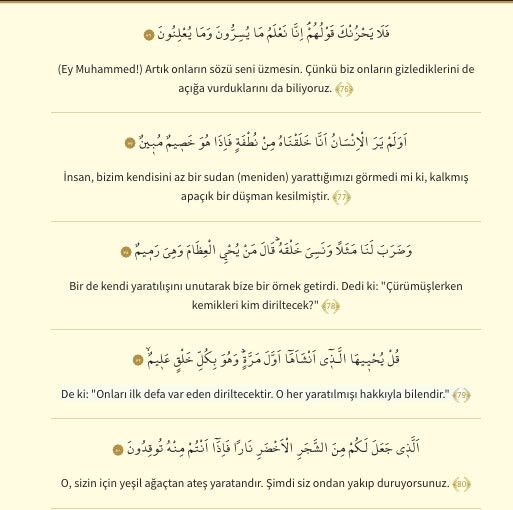 فَلَا يَحْزُنْكَ قَوْلُهُمْۢ اِنَّا نَعْلَمُ مَا يُسِرُّونَ وَمَا يُعْلِنُونَ ﴿٧٦﴾
(Ey Muhammed!) Artık onların sözü seni üzmesin. Çünkü biz onların gizlediklerini de
açığa vurduklarını da biliyoruz. ﴾76﴿
اَوَلَمْ يَرَ الْاِنْسَانُ اَنَّا خَلَقْنَاهُ مِنْ نُطْفَةٍ فَاِذَا هُوَ خَص۪يمٌ مُب۪ينٌ ﴿٧٧﴾
İnsan, bizim kendisini az bir sudan (meniden) yarattığımızı görmedi mi ki, kalkmış
apaçık bir düşman kesilmiştir. ﴾77﴿
وَضَرَبَ لَنَا مَثَلًا وَنَسِيَ خَلْقَهُۜ قَالَ مَنْ يُحْيِ الْعِظَامَ وَهِيَ رَم۪يمٌ ﴿٧٨﴾
Bir de kendi yaratılışını unutarak bize bir örnek getirdi. Dedi ki: "Çürümüşlerken
kemikleri kim diriltecek?" ﴾78﴿
قُلْ يُحْي۪يهَا الَّـذ۪ٓي اَنْشَاَهَٓا اَوَّلَ مَرَّةٍۜ وَهُوَ بِكُلِّ خَلْقٍ عَل۪يمٌۙ ﴿٧٩﴾
De ki: "Onları ilk defa var eden diriltecektir. O her yaratılmışı hakkıyla bilendir." ﴾79﴿
اَلَّذ۪ي جَعَلَ لَكُمْ مِنَ الشَّجَرِ الْاَخْضَرِ نَارًا فَاِذَٓا اَنْتُمْ مِنْهُ تُوقِدُونَ ﴿٨٠﴾
O, sizin için yeşil ağaçtan ateş yaratandır. Şimdi siz ondan yakıp duruyorsunuz. ﴾80﴿